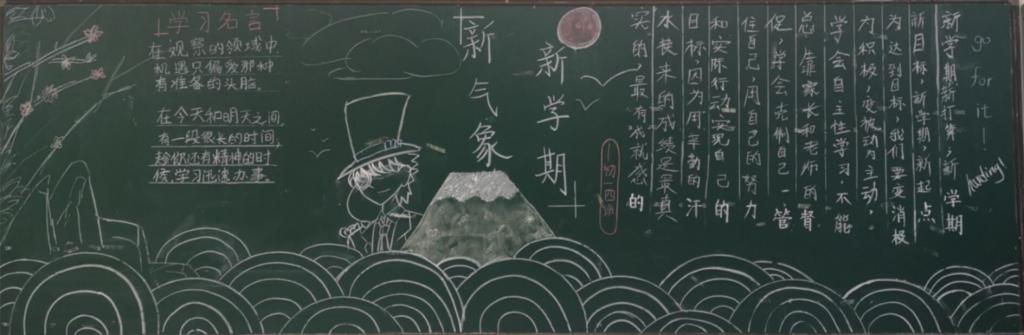 学习名言
在观察的领域中
机遇只偏爱那种
有准备的头脑。
在今天和明天之间
有一段很长的时间,
你还有精神的时
候,学习迅速办事
新学期
新气象
go for it!
新学期新打算,新学期
新目标,新学期,新起点
为达到目标,我们要变消极
为积极,变被动为主动,
学会自主性学习,不能
总靠家长和老师的督
促,学会克制自己,管
住自己,用自己的努力
和实际行动实现自己的
目标,因为用辛勤的汗
水换来的成绩是最真
实的,最有成就感的